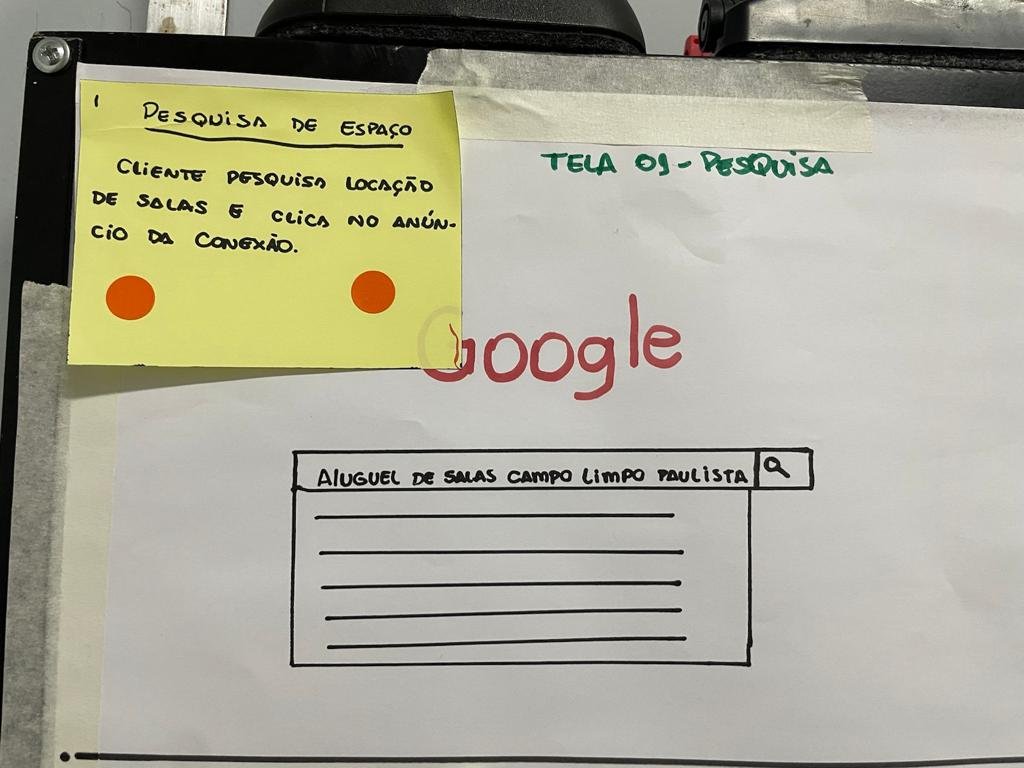 1
PESQUISA DE ESPAÇO
CLIENTE PESQUISA LOCAÇÃO
DE SALAS E CLICA NO ANÚN-
CIO DA CONEXÃO.
TELA 01 - PESQUISA
Google
ALUGUEL DE SALAS CAMPO LIMPO PAULISTA